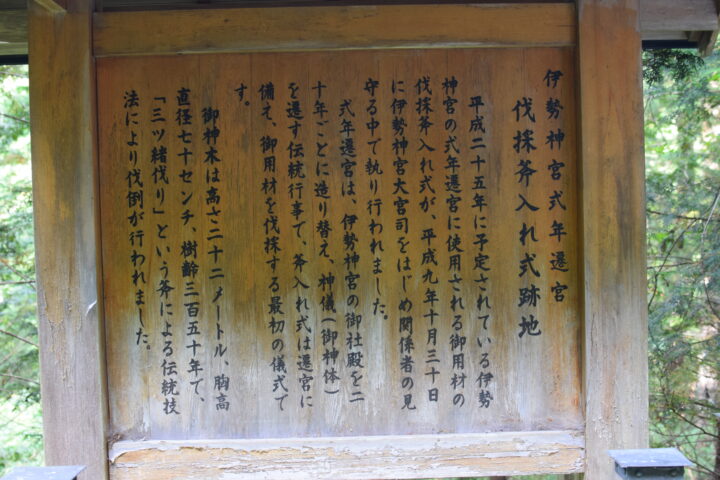 伊勢神宮式年遷宮
伐採斧入れ式跡地
平成二十五年に予定されている伊勢
神宮の式年遷宮に使用される御用材の
伐採斧入れ式が、平成九年十月三十日
に伊勢神宮大宮司をはじめ関係者の見
守る中で執り行われました。
式年遷宮は、伊勢神宮の御社殿を二
十年ごとに造り替え、神儀(御神体)
を遷す伝統行事で、斧入れ式は遷宮に
備え、御用材を伐採する最初の儀式で
す。
御神木は高さ二十二メートル、胸高
直径七十センチ、樹齢三百五十年で、
「三ツ緒伐り」という斧による伝統技
法により伐倒が行われました。